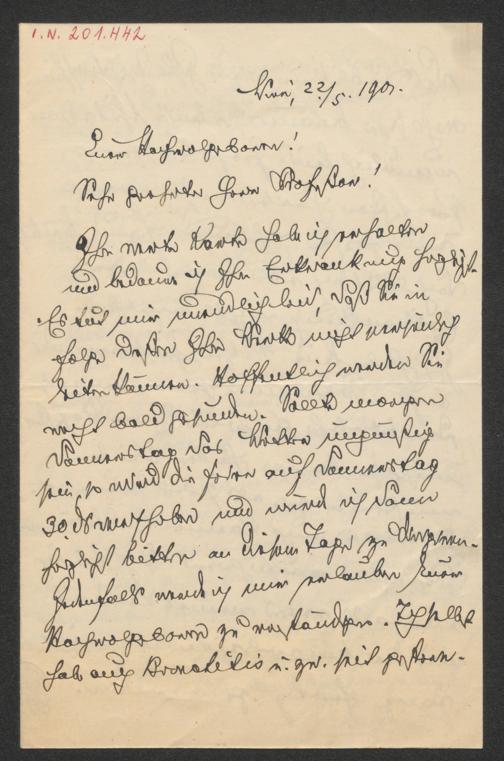 I.N. 201.442
Wien, 22/5. 1901.
Euer Hochwolgeboren!
Sehr geehrter Herr Professor!
Ihre werte Karte hab ich erhalten
und bedaure ich Ihre Erkrankung
Es tut mir unendlich leid, daß Sie in
folge dessen Ihr Werk nicht persönlich
leiten können. Hoffentlich werden Sie
recht bald gesunden. Sollte morgen
Donnerstag das Wetter ungünstig
sein, so wird die Feier auf Donnerstag
30. ds verschoben und würde ich dann
höflichst bitten an diesem Tage zu
Jedenfalls werde ich mir erlauben Euer
Hochwolgeboren zu verständigen. Ich selbst
hab auch Bronchitis u. zw. seit gestern.